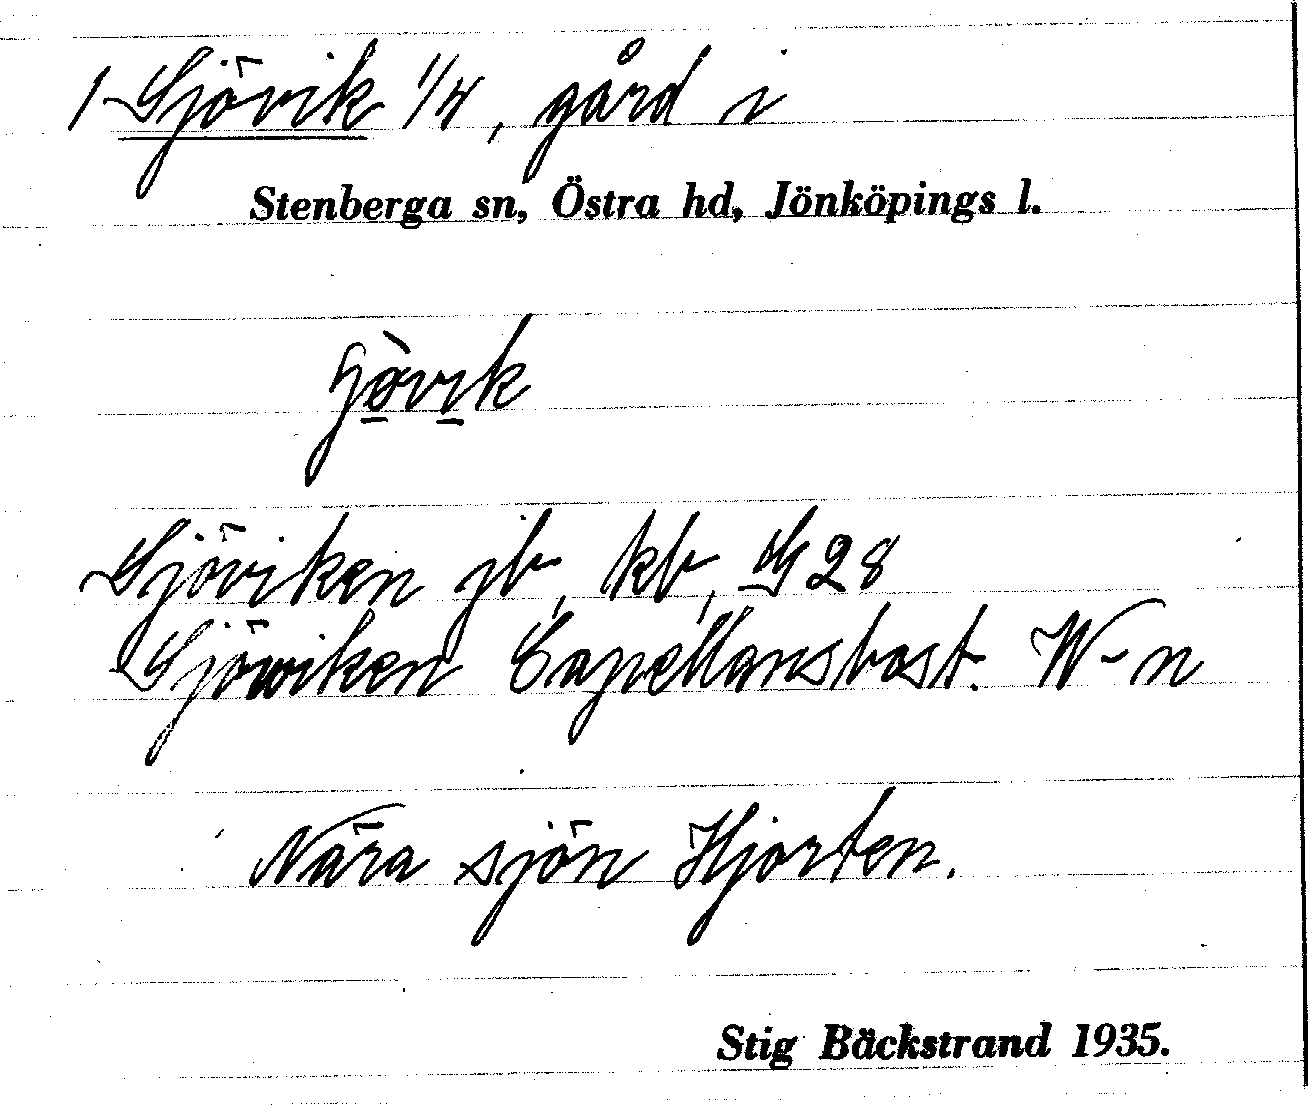 1 Sjövik 1/4, gård i
Stenberga sn, Östra hd, Jönköpings l.
Sjöviken jb, kb, G 28
Sjöwiken Capellansbost. W-n
Nära sjön Hjorten.
Stig Bäckstrand 1935.